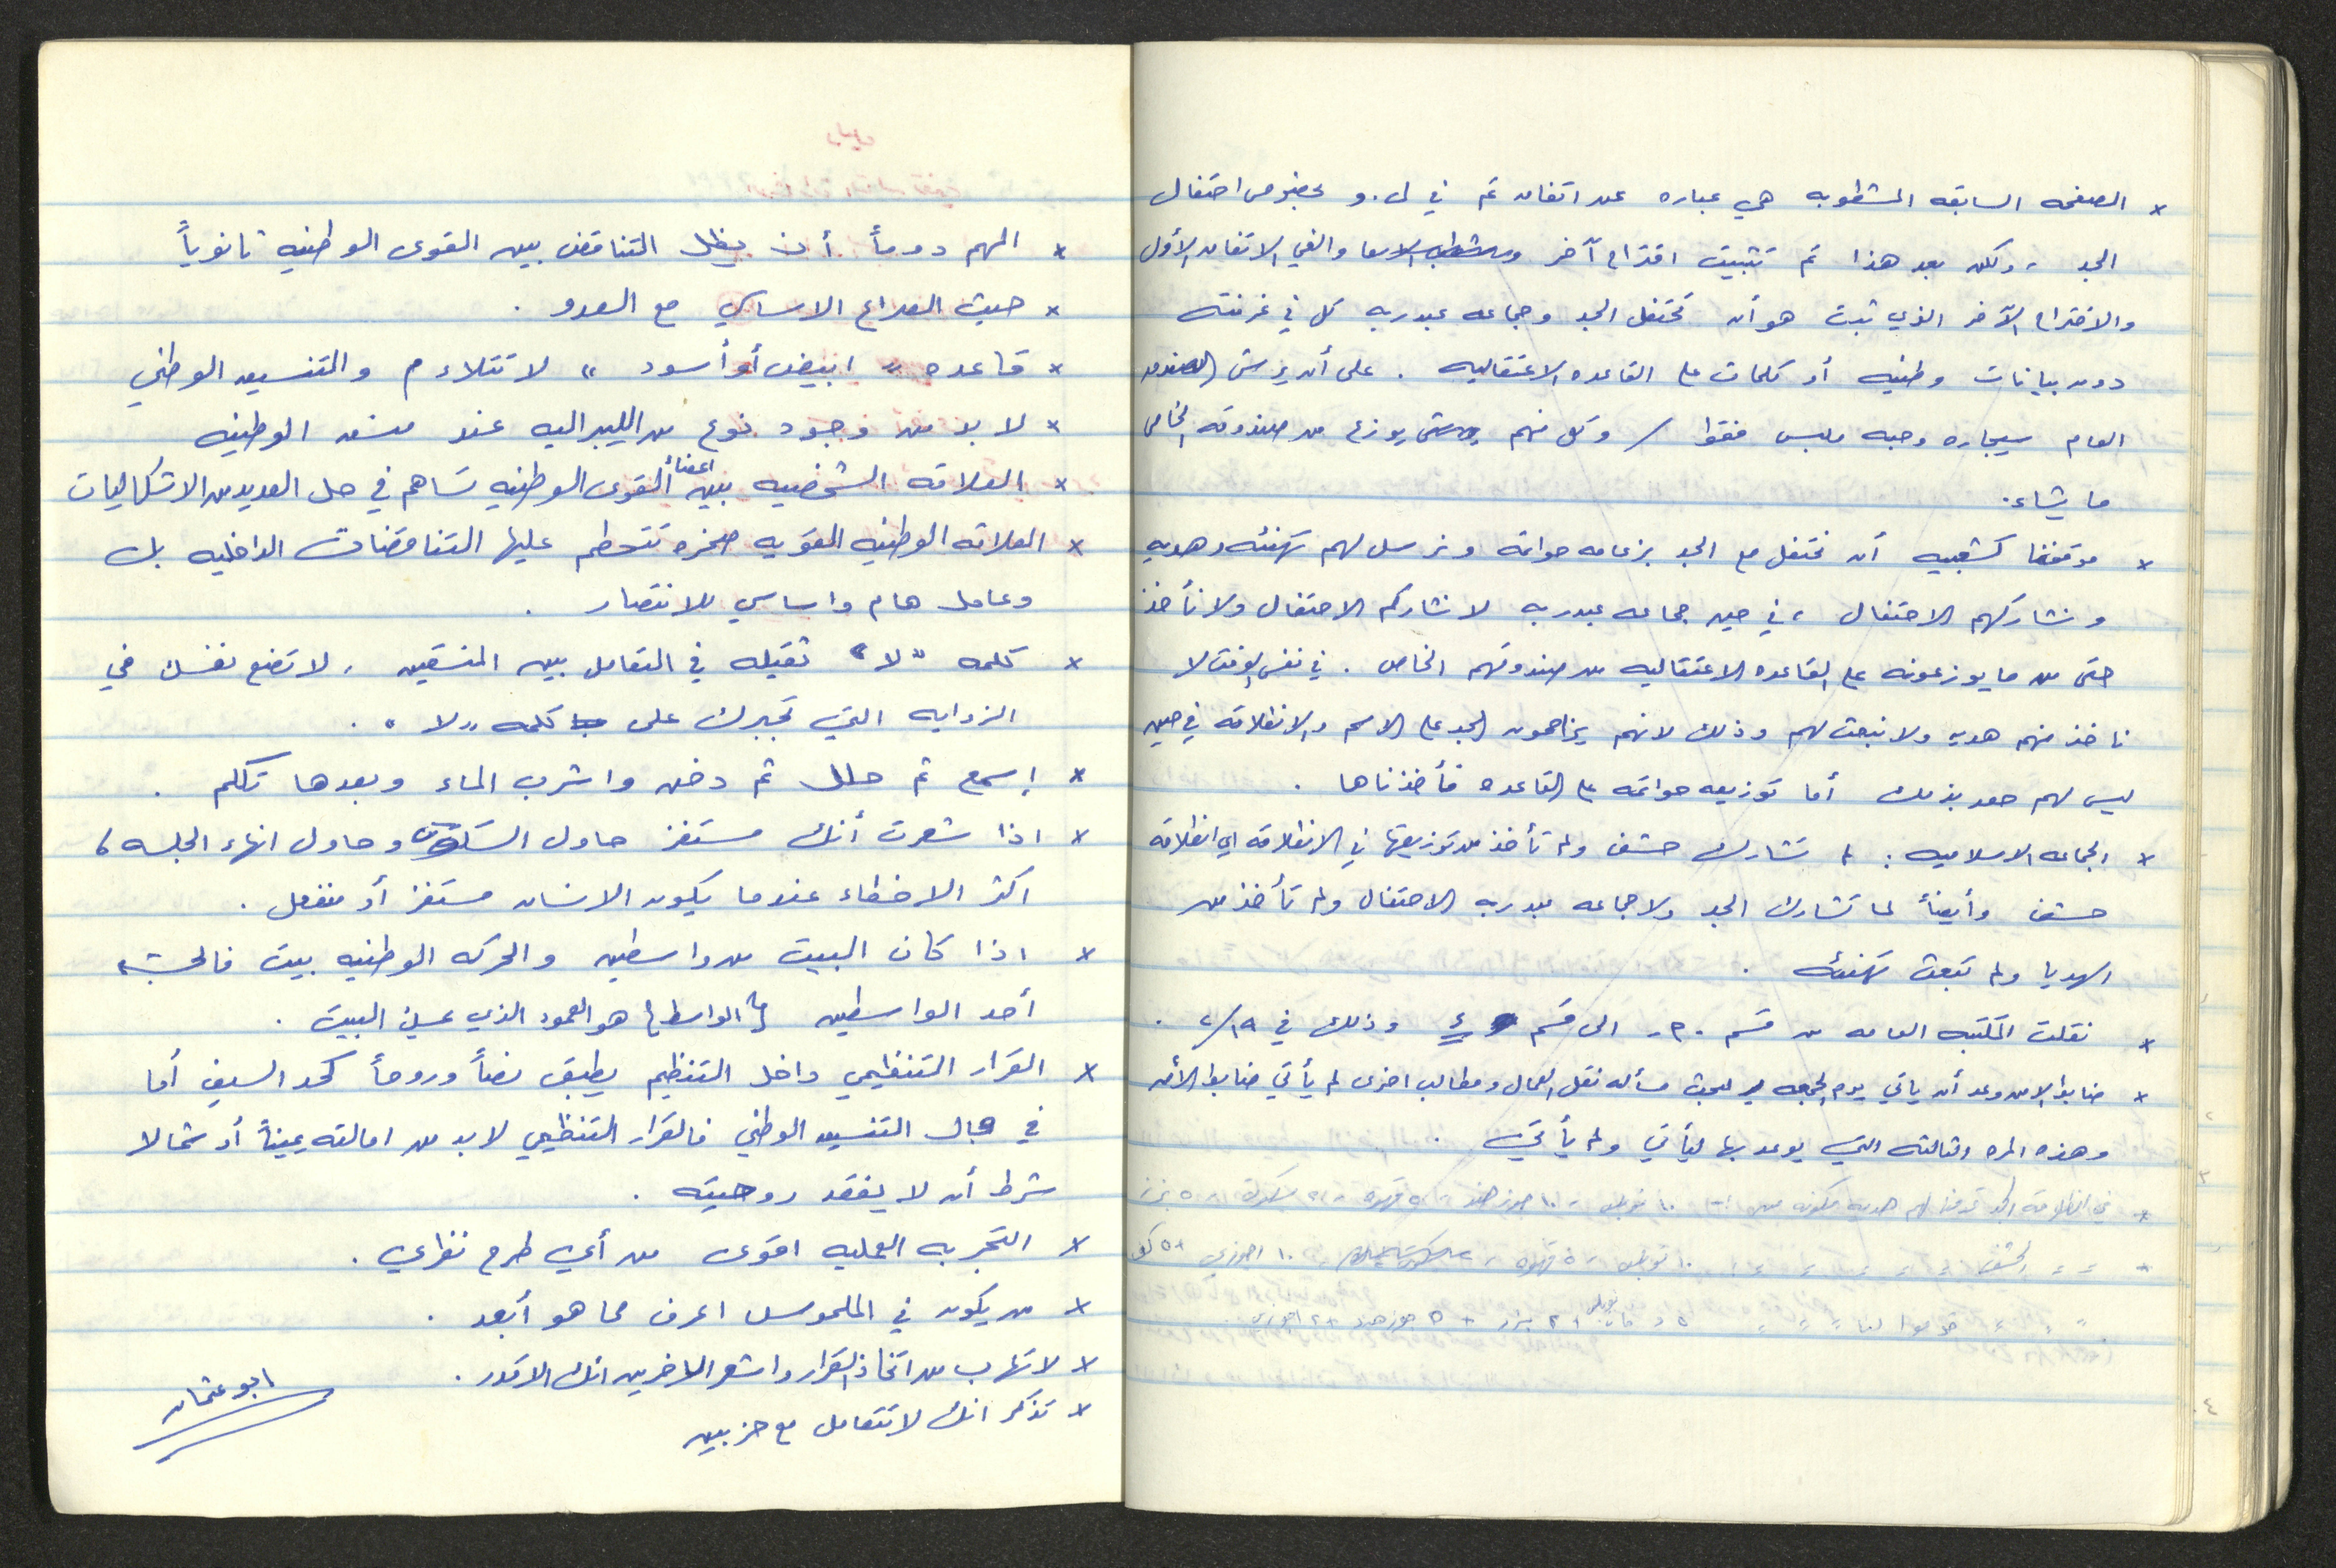 × الصفحه السابقه المشطوبه هي عباره عن اتفاق تم في ل.و بخصوص احتفال
الجد ، ولكن بعد هذا تم تثبيت اقتراح آخر والغي الاتفاق الأول
والاقتراح الآخر الذي ثبت هو أن تحتفل الجد وجماعه عبدربه كل في غرفته
دون بيانات وطنيه أو كلمات على القاعده الاعتقاليه . على أن يرش الصندوق
العام سيجاره وحبه ملبس فقط / وكل منهم يوزع من صندوقه الخاص
ما يشاء .
× موقفنا كشعبيه أن نحتفل مع الجد بزعامه حواتمه ونرسل لهم تهنئه وهديه
ونشاركهم الاحتفال ، في حين جماعه عبدربه لا نشاركم الاحتفال ولا نأخذ
حتى من ما يوزعونه على القاعده الاعتقاليه من صندوقهم الخاص . في نفس الوقت لا
ناخذ منهم هديه ولا نبعث لهم وذلك لانهم يزاحمون الجد على الاسم والانطلاقه في حين
ليس لهم حق بذلك أما توزيعه حواتمه على القاعده فأخذناها .
× الجماعه الاسلاميه : لم تشارك حشف ولم تأخذ من توزيعتها في الانطلاقه اي انطلاقه
حشف وأيضاً لما تشارك الجد ولا جماعه عبدربه الاحتفال ولم تأخذ من
الهديا ولم تبعث تهنئه .
× نقلت المكتبه العامه من قسم ٣٠ الى قسم ٤ وذلك في ٢/١٩ .
× ضابط الامن وعد أن ياتي يوم الجمعه لبحث مسأله نقل العمال ومطالب اخرى لم يأتي ضابط الأمن
وهذه المره الثالثه التي يوعد بها ليأتي ولم يأتي .
× في انطلاقه الجد قدمنا لهم هديه مكونه من ١٠ جوز هند ٥ قهوه
× = = لحشف = = ٥ قهوه ١٠
= = قدموا لنا = = ٥ جوز هند
× المهم دوماً أن يظل التناقض بين القوى الوطنيه ثانوياً
× حيث الصراع الاساسي مع العدو .
× قاعده " ابيض أو أسود " لا تتلاءم والتنسيق الوطني
× لا بد من وجود نوع من الليبراليه عند منسق الوطنيه
× العلاقه الشخصيه بين اعضاء القوى الوطنيه تساهم في حل العديد من الاشكاليات
× العلاقه الوطنيه القويه صخره تتحطم عليها التناقضات الداخليه بل
وعامل هام واساسي للانتصار .
× كلمه " لا " ثقيله في التعامل بين المنسقين ، لا تضع نفسك في
الزوايه التي تجبرك على كلمه " لا " .
× إسمع ثم حلل ثم دخن واشرب الماء وبعدها تكلم .
× اذا شعرت أنك مستفز حاول السكوت وحاول انهاء الجلسه ،
اكثر الاخطاء عندما يكون الانسان مستفز أو منفعل .
× اذا كان البيت من واسطين والحركه الوطنيه بيت فالجبهه
أحد الواسطين والواسط هو العمود الذي البيت .
× القرار التنظيمي داخل التنظيم يطبق نصاً وروحاً كحد السيف أما
في مجال التنسيق الوطني فالقرار التنظيمي لابد من امالته يميناً أو شمالا
شرط أن لا يفقد روحيته .
× التجربه العمليه اقوى من أي طرح نظري .
× من يكون في الملموس اعرف مما هو أبعد .
× لا تتهرب من اتخاذ القرار واشعر الاخرين انك الاقدر .
× تذكر انك لا تتعامل مع حزبين
ابو عثمان